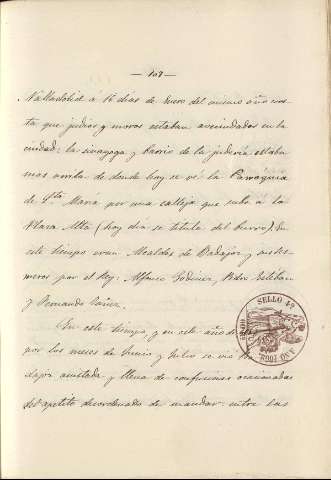 — 107 —
Valladolid á 16 dias de Enero del mismo año cons
ta que judios y moros estaban avecindados en la
ciudad: la sinagoga y barrio de la juderia estaba
mas arriba de donde hoy se vé la Parróquia
de Sta Maria por una calleja que sube á la
Plaza Alta (hoy dia se titula del burro). En
este tiempo eran Alcaldes de Badajoz y sus tér
minos por el Rey: Alfonso Godinez, Pedro Esteban
y Fernando Yañez.
En este tiempo y en este año de
por los meses de Junio y Julio se vió
dajoz ajustada y llena de confusiones ocasionadas
del apetito desordenado de mandar entre las
SELLO